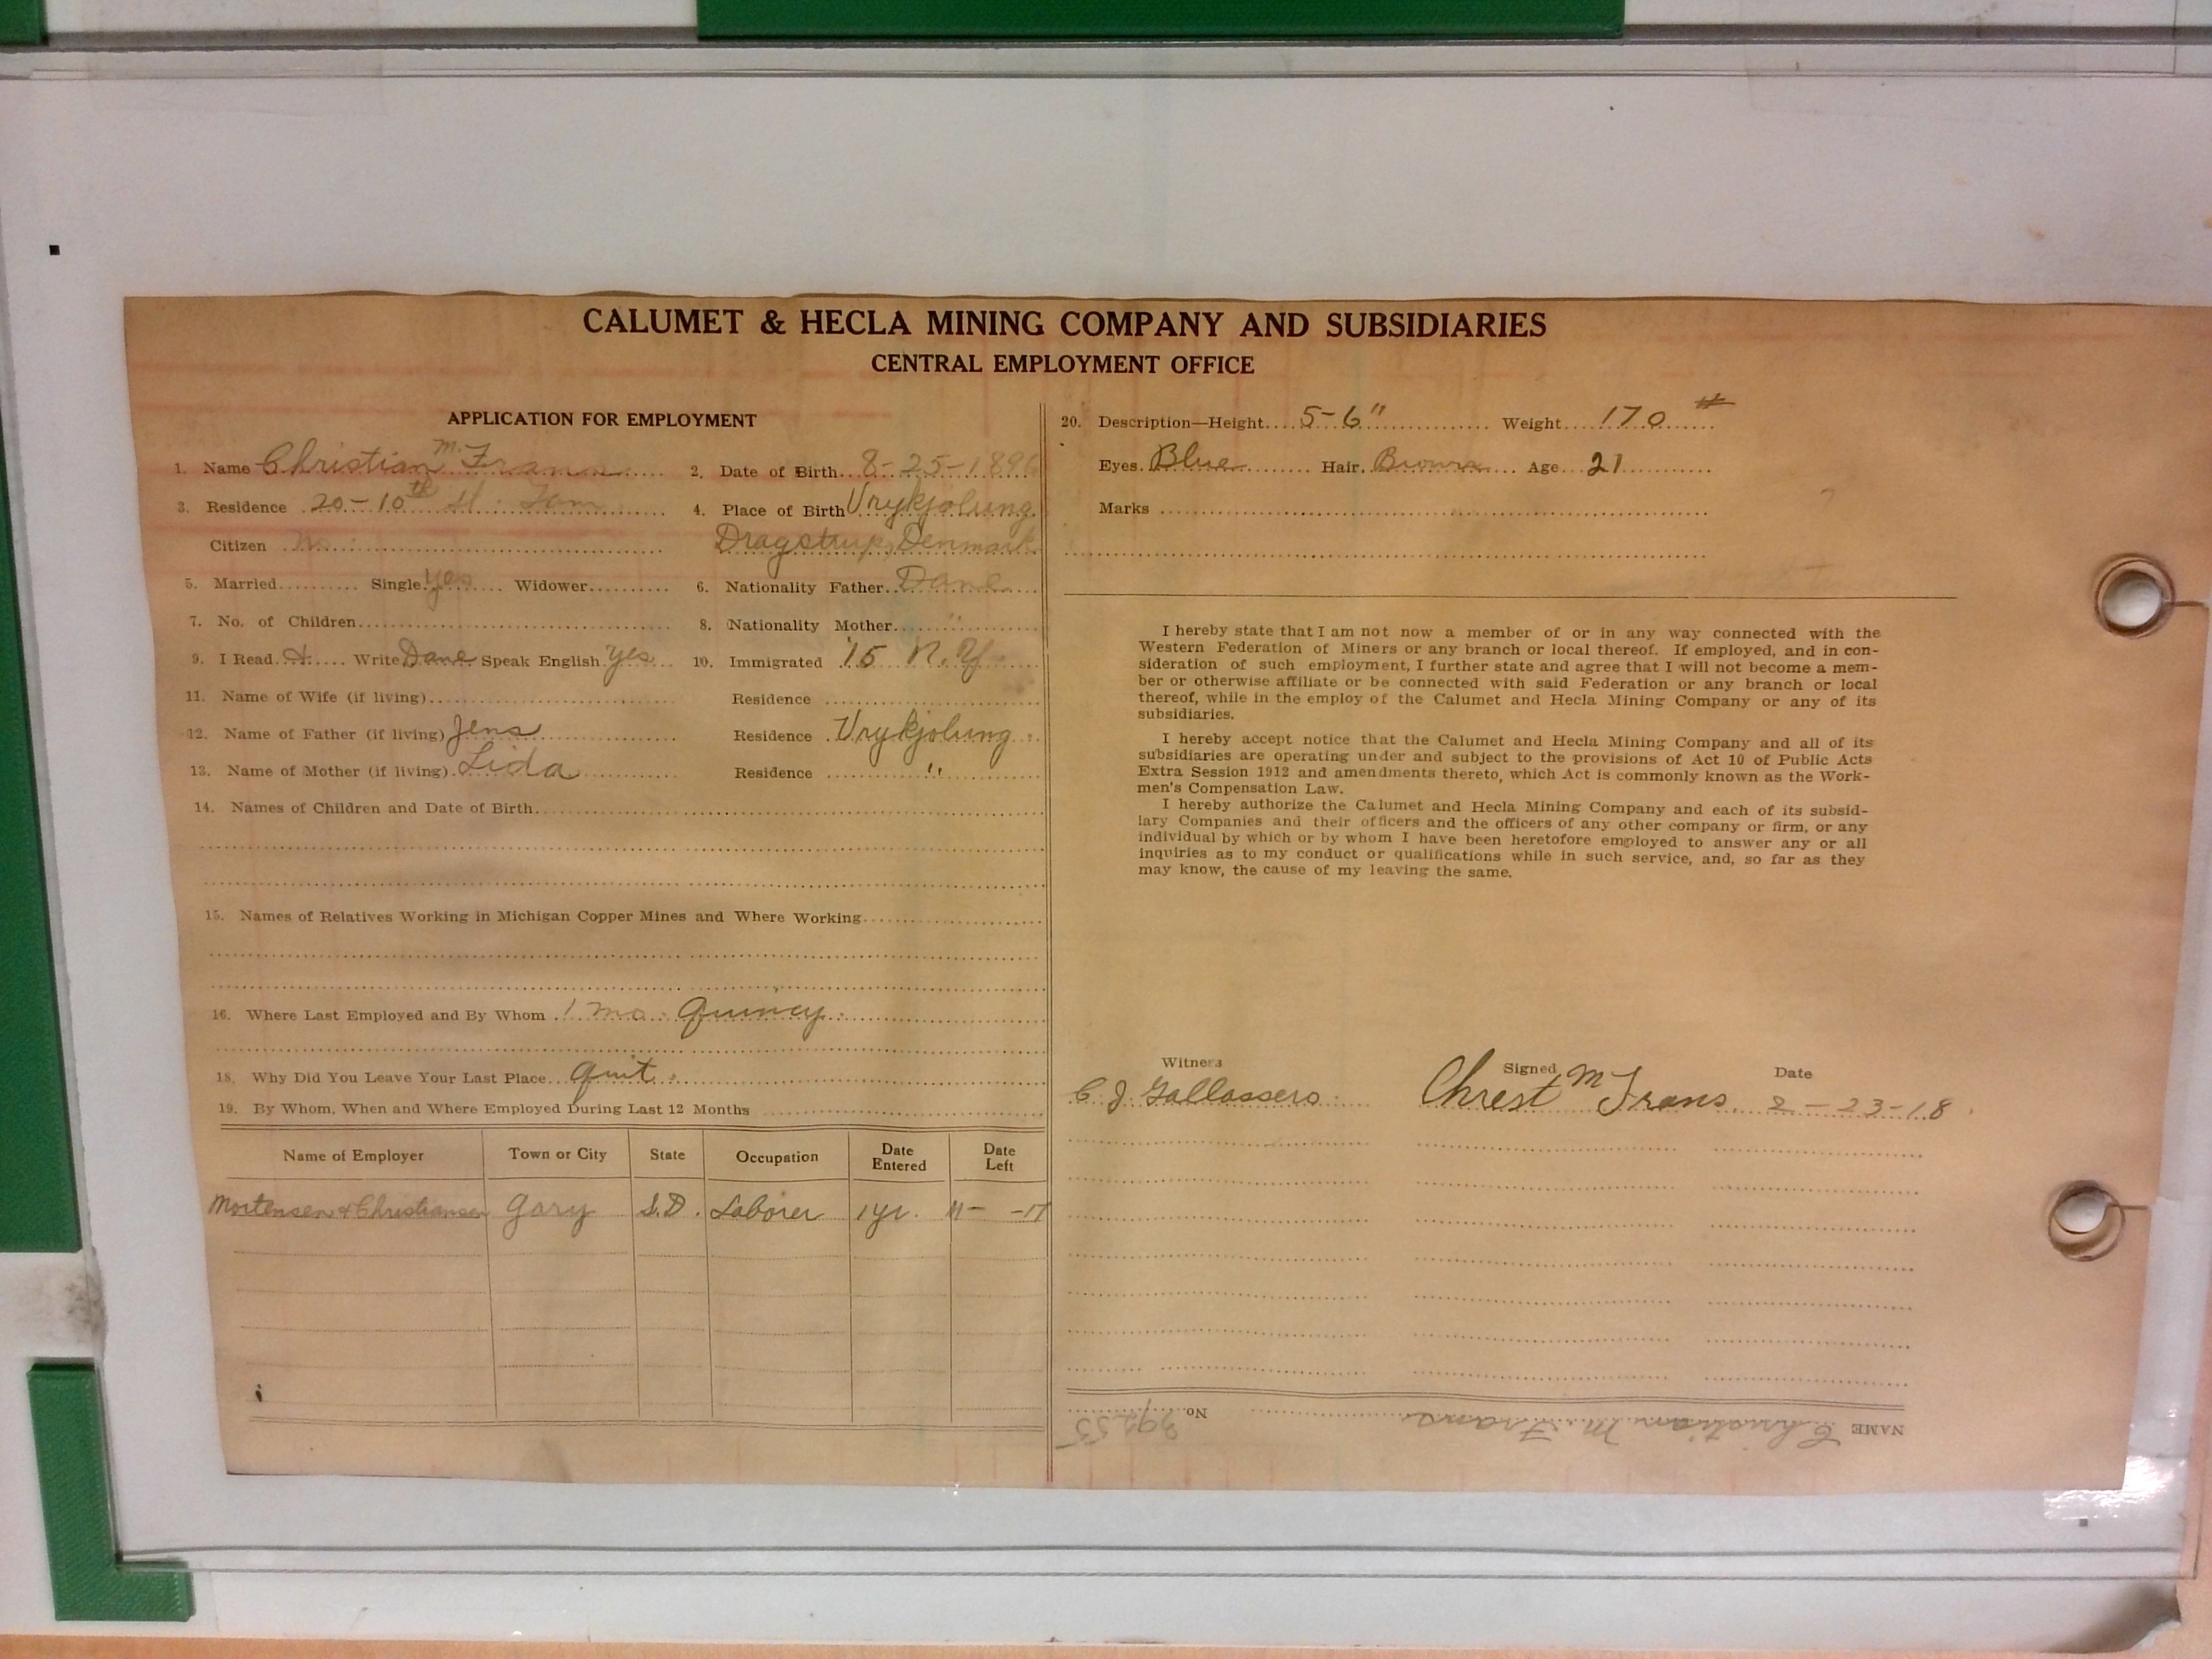 CALUMET & HECLA MINING COMPANY AND SUBSIDIARIES
CENTRAL EMPLOYMENT OFFICE
APPLICATION FOR EMPLOYMENT
1. Name Christian M. Frans
2. Date of Birth 8-25-1896
3. Residence 20-10th St.
4. Place of Birth Vrykjolung
Citizen No.
Dragstrup, Denmark
5. Married Single yes Widower
6. Nationality Father Dane
7. No. of Children
8. Nationality Mother "
9. I Read & Write Dane Speak English yes
10. Immigrated '15 N.Y.
11. Name of Wife (if living)
Residence
12. Name of Father (if living) Jens
Residence Vrykjolung
13. Name of Mother (if living) Lida
Residence "
14. Names of Children and Date of Birth
15. Names of Relatives Working in Michigan Copper Mines and Where Working
16. Where Last Employed and By Whom 1 mo. Quincy.
18. Why Did You Leave Your Last Place quit.
19. By Whom, When and Where Employed During Last 12 Months
Name of Employer Town or City State Occupation Date Entered Date Left
Mortensen & Christiansen Gary S.D. Laborer 1 yr. 11- -17
20. Description—Height 5-6" Weight 170 #
Eyes Blue Hair Brown Age 21
Marks
I hereby state that I am not now a member of or in any way connected with the
Western Federation of Miners or any branch or local thereof. If employed, and in con-
sideration of such employment, I further state and agree that I will not become a mem-
ber or otherwise affiliate or be connected with said Federation or any branch or local
thereof, while in the employ of the Calumet and Hecla Mining Company or any of its
subsidiaries.
I hereby accept notice that the Calumet and Hecla Mining Company and all of its
subsidiaries are operating under and subject to the provisions of Act 10 of Public Acts
Extra Session 1912 and amendments thereto, which Act is commonly known as the Work-
men's Compensation Law.
I hereby authorize the Calumet and Hecla Mining Company and each of its subsid-
iary Companies and their officers and the officers of any other company or firm, or any
individual by which or by whom I have been heretofore employed to answer any or all
inquiries as to my conduct or qualifications while in such service, and, so far as they
may know, the cause of my leaving the same.
Witness Signed Date
C. J. Gallassero Chrest M Frans 2-23-18
NAME Christian M. Frans No. 39255